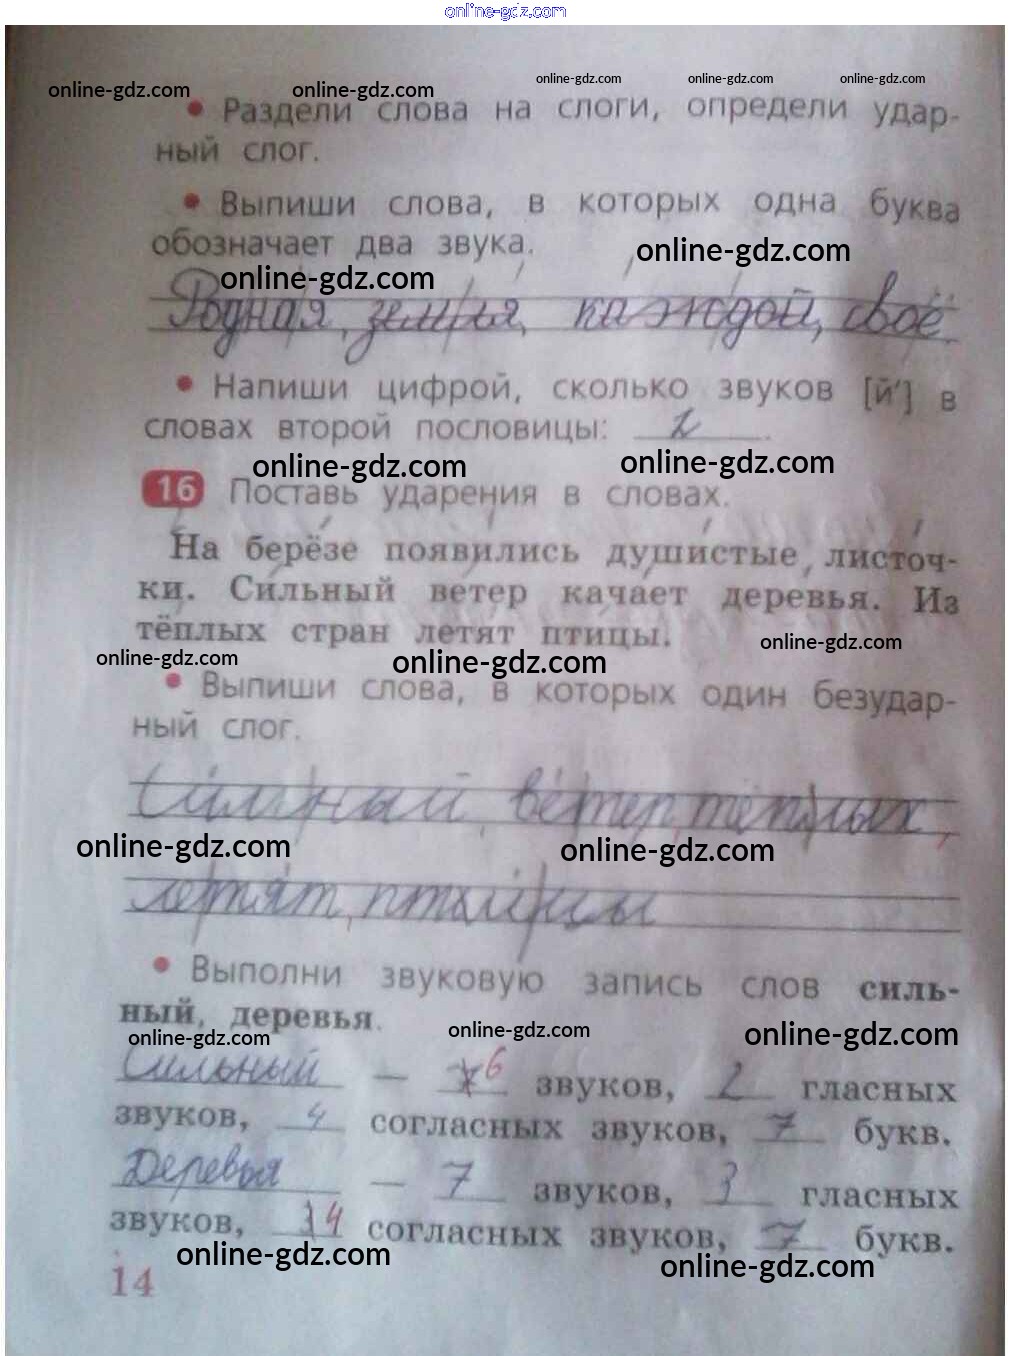 online-gdz.com
online-gdz.com online-gdz.com online-gdz.com online-gdz.com online-gdz.com
• Раздели слова на слоги, определи удар-
ный слог.
• Выпиши слова, в которых одна буква
обозначает два звука.
online-gdz.com
online-gdz.com
Родная, земля, каждой, своё
• Напиши цифрой, сколько звуков [й'] в
словах второй пословицы: 2.
online-gdz.com online-gdz.com
16 Поставь ударения в словах.
На берёзе появились душистые листоч-
ки. Сильный ветер качает деревья. Из
тёплых стран летят птицы.
online-gdz.com online-gdz.com online-gdz.com
• Выпиши слова, в которых один безудар-
ный слог.
Сильный, ветер, тёплых,
online-gdz.com online-gdz.com
летят, птицы
• Выполни звуковую запись слов силь-
ный, деревья.
online-gdz.com online-gdz.com online-gdz.com
Сильный — 6 звуков, 2 гласных
звуков, 4 согласных звуков, 7 букв.
Деревья — 7 звуков, 3 гласных
звуков, 4 согласных звуков, 7 букв.
online-gdz.com online-gdz.com
14